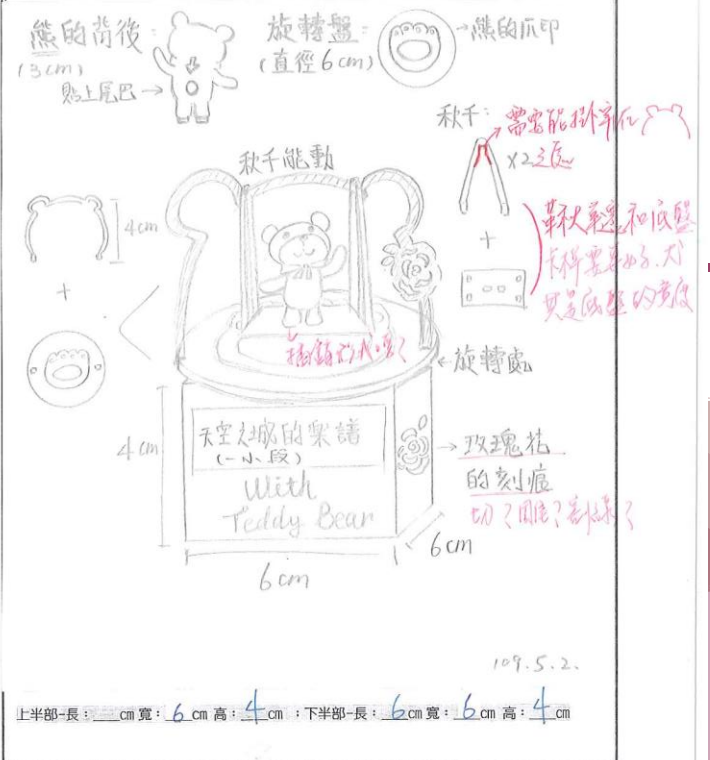 熊的背後：
(3cm)
貼上尾巴→
旋轉盤：
(直徑6cm)
→熊的爪印
秋千：
需要能掛牢在
X2
秋千能動
4cm
+
+
和底盤
卡榫需要
底盤的寬度
插銷形式嗎？
←旋轉處
4cm
天空之城的樂譜
(一小段)
With
Teddy Bear
→玫瑰花
的刻痕
切？
6cm
6cm
109.5.2.
上半部-長：__cm 寬：6cm 高：4cm ；下半部-長：6cm 寬：6cm 高：4cm